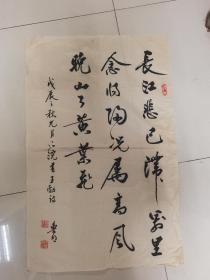 長江悲已滯萬里
念將歸況屬高風
晚山山黃葉飛
戊辰秋九月